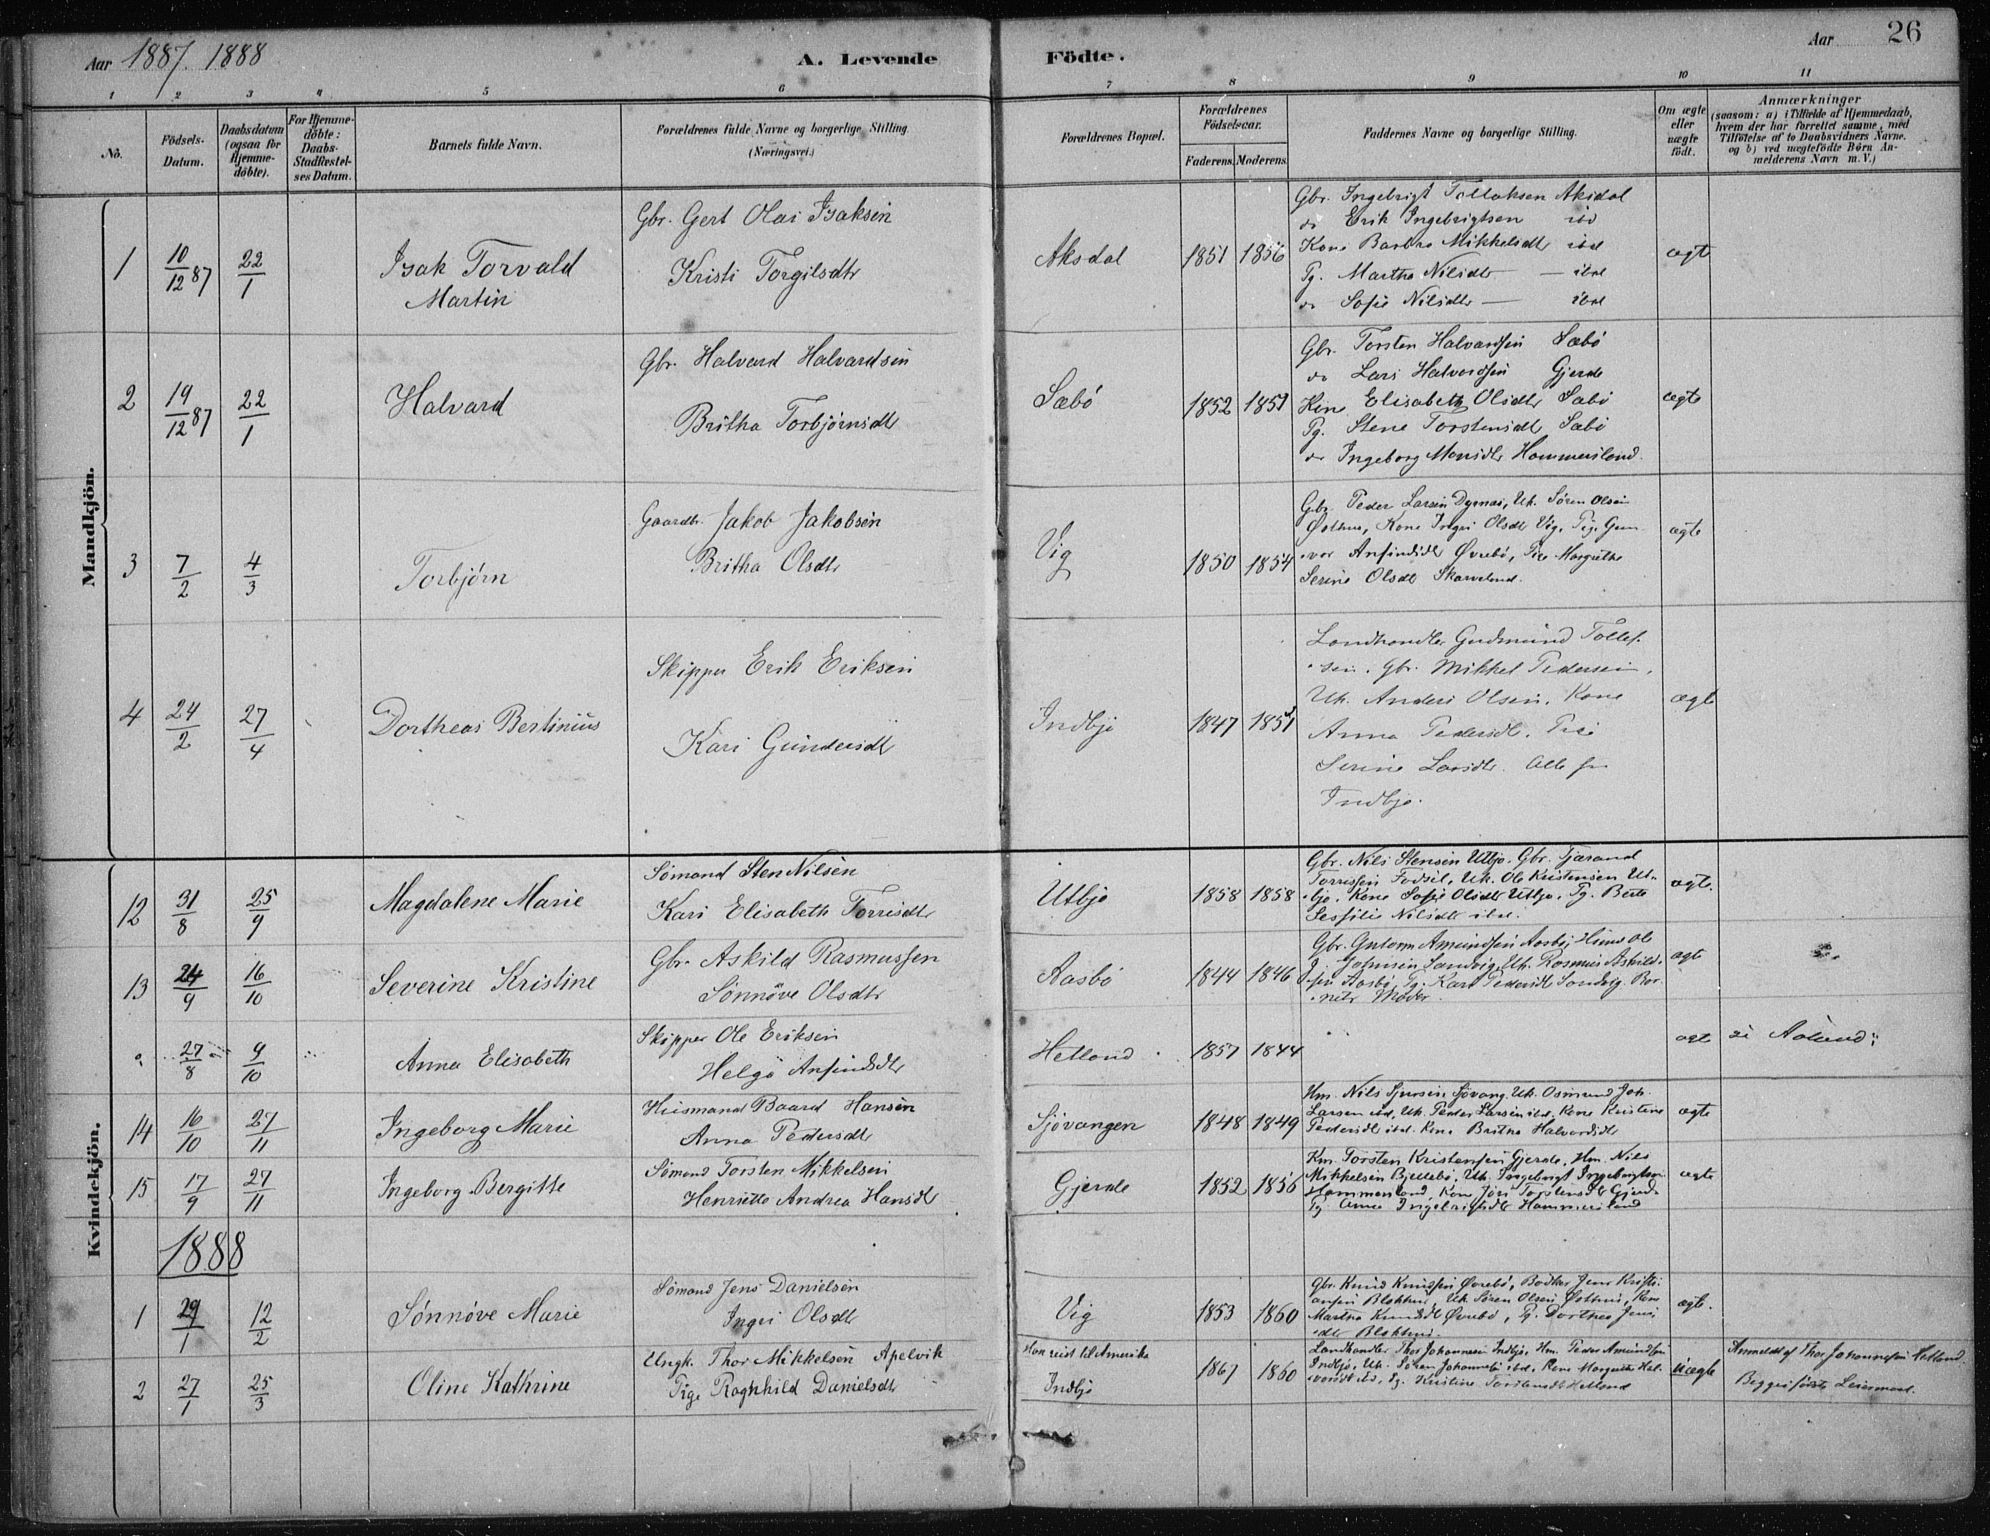 Aar 1887. 1888
A. Levende Födte.
Aar
26
1 2 3 4 5 6 7 8 9 10 11
No.
Födsels-Datum.
Daabsdatum (ogsaa for Hjemme-döbte).
For Hjemme-döbte: Daabs-Stadfæstel-ses Datum.
Barnets fulde Navn.
Forældrenes fulde Navne og borgerlige Stilling. (Næringsvei.)
Forældrenes Bopæl.
Forældrenes Födselsaar.
Faderens. Moderens.
Faddernes Navne og borgerlige Stilling.
Om ægte eller uægte födt.
Anmærkninger
(saasom: a) i Tilfælde af Hjemmedaab, hvem der har forrettet samme, med Tilföielse af to Daabsvidners Navne. og b) ved uægtefödte Börn An-melderens Navn m. V.)
Mandkjön.
1 10/12 87 22/1 Isak Torvald Martin
Gbr. Gert Olai Isaksen
Kristi Torgilsdtr
Aksdal 1851 1856
Gbr. Ingebrigt Tollaksen Aksdal
do Erik Ingebrigtsen ibd
Kone Barbro Mikkelsdtr ibd
Pg. Martha Nilsdtr — ibd
do Sofie Nilsdtr — ibd
ægte
2 19/12 87 22/1 Halvard
Gbr. Halvard Halvardsen
Britha Torbjörnsdtr
Sæbö 1852 1851
Gbr. Torsten Halvardsen Sæbö
do Lars Halvardsen Gjerde
Kone Elisabeth Olsdtr Sæbö
Pg. Stene Torstensdtr Sæbö
do Ingeborg Monsdtr Hammersland.
ægte
3 7/2 4/3 Torbjörn
Gaardbr. Jakob Jakobsen
Britha Olsdtr
Vig 1850 1854
Gbr. Peder Larsen Dymas, Uk. Sören Olsen
Østhus, Kone Ingri Olsdtr Vig, Pige Gun
vor Anfindsdtr Øvrebö, Pige Margrethe
Serine Olsdtr
ægte
4 24/2 27/4 Dortheas Bertinius
Skipper Erik Eriksen
Kari Gundersdtr
Indbjo 1847 1851
Landhandler Gudmund Tollef-
sen. Gbr. Mikkel Pedersen.
Uk. Anders Olsen. Kone
Anna Pedersdtr. Pige
Serine Larsdtr. Alle fra
Indbjo.
ægte
Kvindekjön.
12 31/8 25/9 Magdalene Marie
Sömand Sten Nilsen
Kari Elisabeth Torrisdtr
Utbjo 1858 1858
Gbr. Nils Stensen Utbjo. Gbr. Tjærand
Torrissen Fodstl, Uk. Ole Kristensen Ut-
bjo, Kone Sofie Olsdtr Utbjo, Pg. Berte
Nilsdtr ibd.
ægte.
13 24/9 16/10 Severine Kristine
Gbr. Askild Rasmussen
Sönnöve Olsdtr
Aasbö 1844 1846
Gbr. Gutorm Amundsen Aasbö, Ole
Johnsen Sandvig, Uk. Rasmus Askild-
sen Aasbö, Pg. Kari Pedersdtr Sandvig. Bar-
nets Moder.
ægte
27/8 9/10 Anna Elisabeth
Skipper Ole Eriksen
Helga Anfindsdtr
Hetland 1857 1844
ægte
14 16/10 27/11 Ingeborg Marie
Husmand Baard Hansen
Anna Pedersdtr
Sjövangen 1848 1849
Hm. Nils Sjursen Sjövang. Uk. Osmund Joh.
Larsen ibd, Uk. Peder Larsen ibd. Kone Kristine
Pedersdtr ibd. Kone Britha Halvardsdtr
ægte
15 17/9 27/11 Ingeborg Bergitte
Sömand Torsten Mikkelsen
Henriette Andrea Hansdtr
Gjerde 1852 1856
Km. Torsten Kristensen Gjerde, Hm. Nils
Mikkelsen Bjellebö, Uk. Ingebrigt Ingebrigtsen
Hammersland, Kone Torstensdtr Gjerde
Pg Anna Ingebrigtsdtr Hammersland
ægte
1888
1 29/1 12/2 Sönnöve Marie
Sömand Jens Danielsen
Ingri Olsdtr
Vig 1853 1860
Gbr. Knud Knudsen Øvrebö, Bödker Jens Kristi-
ansen Blokhus, Uk. Sören Olsen Østhus, Kone
Martha Knudsdtr Øvrebö, Pg. Dorthea Jens
dtr Blokhus.
ægte.
2 27/1 25/3 Oline Kathrine
Ungk. Thor Mikkelsen Apelvik
Pige Ragnhild Danielsdtr
Han reist til Amerika
Indbjo 1867 1860
Landhandler Thor Johannesen Indbjo, Hm. Peder Amundsen
Indbjo, Uk. Johan Johannesen ibd, Kone Margrethe Hal-
vorsdtr ibd, Pg. Kristine Torstensdtr Hetland
uægte
Anmeldt af Thor Johannesen Hetland.
Begges förste Leiermaal.